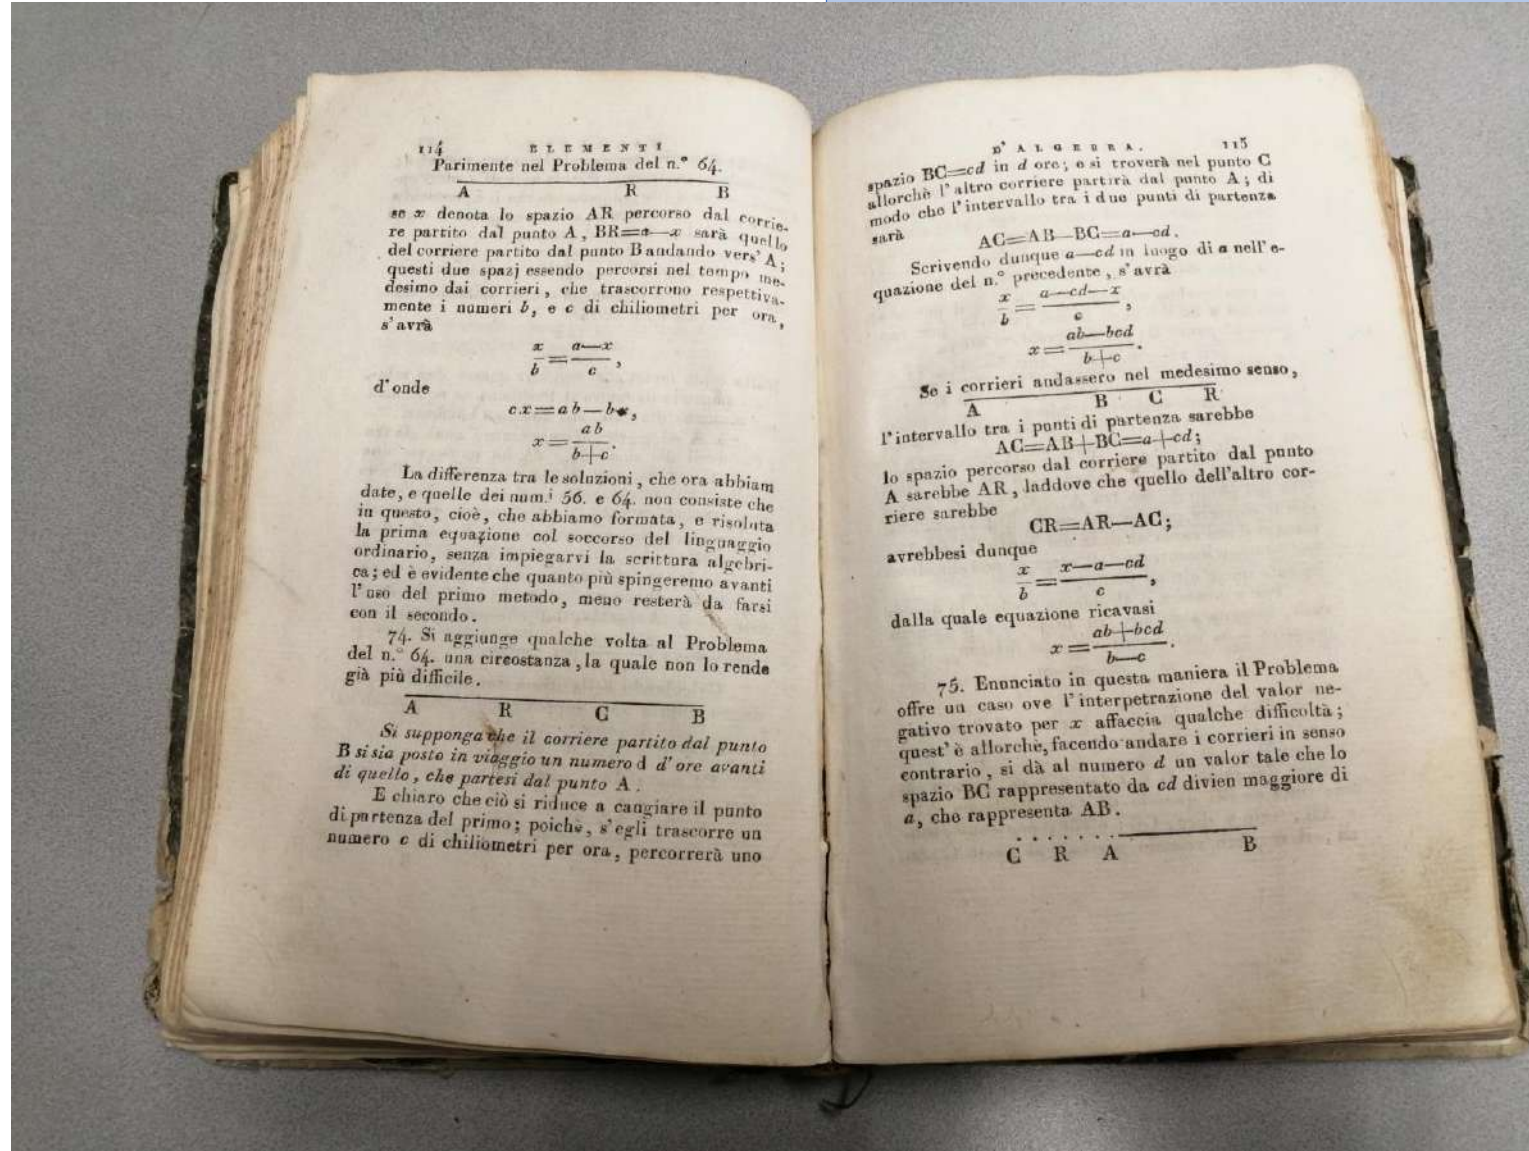 114 ELEMENTI
Parimente nel Problema del n.° 64.
A R B
se x denota lo spazio AR percorso dal corrie-
re partito dal punto A, BR=a—x sarà quello
del corriere partito dal punto B andando vers' A;
questi due spazj essendo percorsi nel tempo me-
desimo dai corrieri, che trascorrono respettiva-
mente i numeri b, e c di chiliometri per ora,
s'avrà
x/b = a—x/c,
d'onde
c.x=ab—bx,
x = ab/b+c.
La differenza tra le soluzioni, che ora abbiam
date, e quelle dei num.i 56. e 64. non consiste che
in questo, cioè, che abbiamo formata, e risoluta
la prima equazione col soccorso del linguaggio
ordinario, senza impiegarvi la scrittura algebri-
ca; ed è evidente che quanto più spingeremo avanti
l'uso del primo metodo, meno resterà da farsi
con il secondo.
74. Si aggiunge qualche volta al Problema
del n.° 64. una circostanza, la quale non lo rende
già più difficile.
A R C B
Si supponga che il corriere partito dal punto
B si sia posto in viaggio un numero d d'ore avanti
di quello, che partesi dal punto A.
E chiaro che ciò si riduce a cangiare il punto
di partenza del primo; poichè, s'egli trascorre un
numero c di chiliometri per ora, percorrerà uno
D'ALGEBRA. 115
spazio BC=cd in d ore; e si troverà nel punto C
allorchè l'altro corriere partirà dal punto A; di
modo che l'intervallo tra i due punti di partenza
sarà
AC=AB—BC=a—cd.
Scrivendo dunque a—cd in luogo di a nell'e-
quazione del n.° precedente, s'avrà
x/b = a—cd—x/c,
x = ab—bcd/b+c.
Se i corrieri andassero nel medesimo senso,
A B C R
l'intervallo tra i punti di partenza sarebbe
AC=AB+BC=a+cd;
lo spazio percorso dal corriere partito dal punto
A sarebbe AR, laddove che quello dell'altro cor-
riere sarebbe
CR=AR—AC;
avrebbesi dunque
x/b = x—a—cd/c,
dalla quale equazione ricavasi
x = ab+bcd/b—c.
75. Enunciato in questa maniera il Problema
offre un caso ove l'interpetrazione del valor ne-
gativo trovato per x affaccia qualche difficoltà;
quest'è allorchè, facendo andare i corrieri in senso
contrario, si dà al numero d un valor tale che lo
spazio BC rappresentato da cd divien maggiore di
a, che rappresenta AB.
C R A B